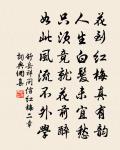 花到紅梅真有韻
人生白髮未宜愁
只須竟就花前醉
如此風流不外學
舒岳祥問信紅梅二章
詞典網集